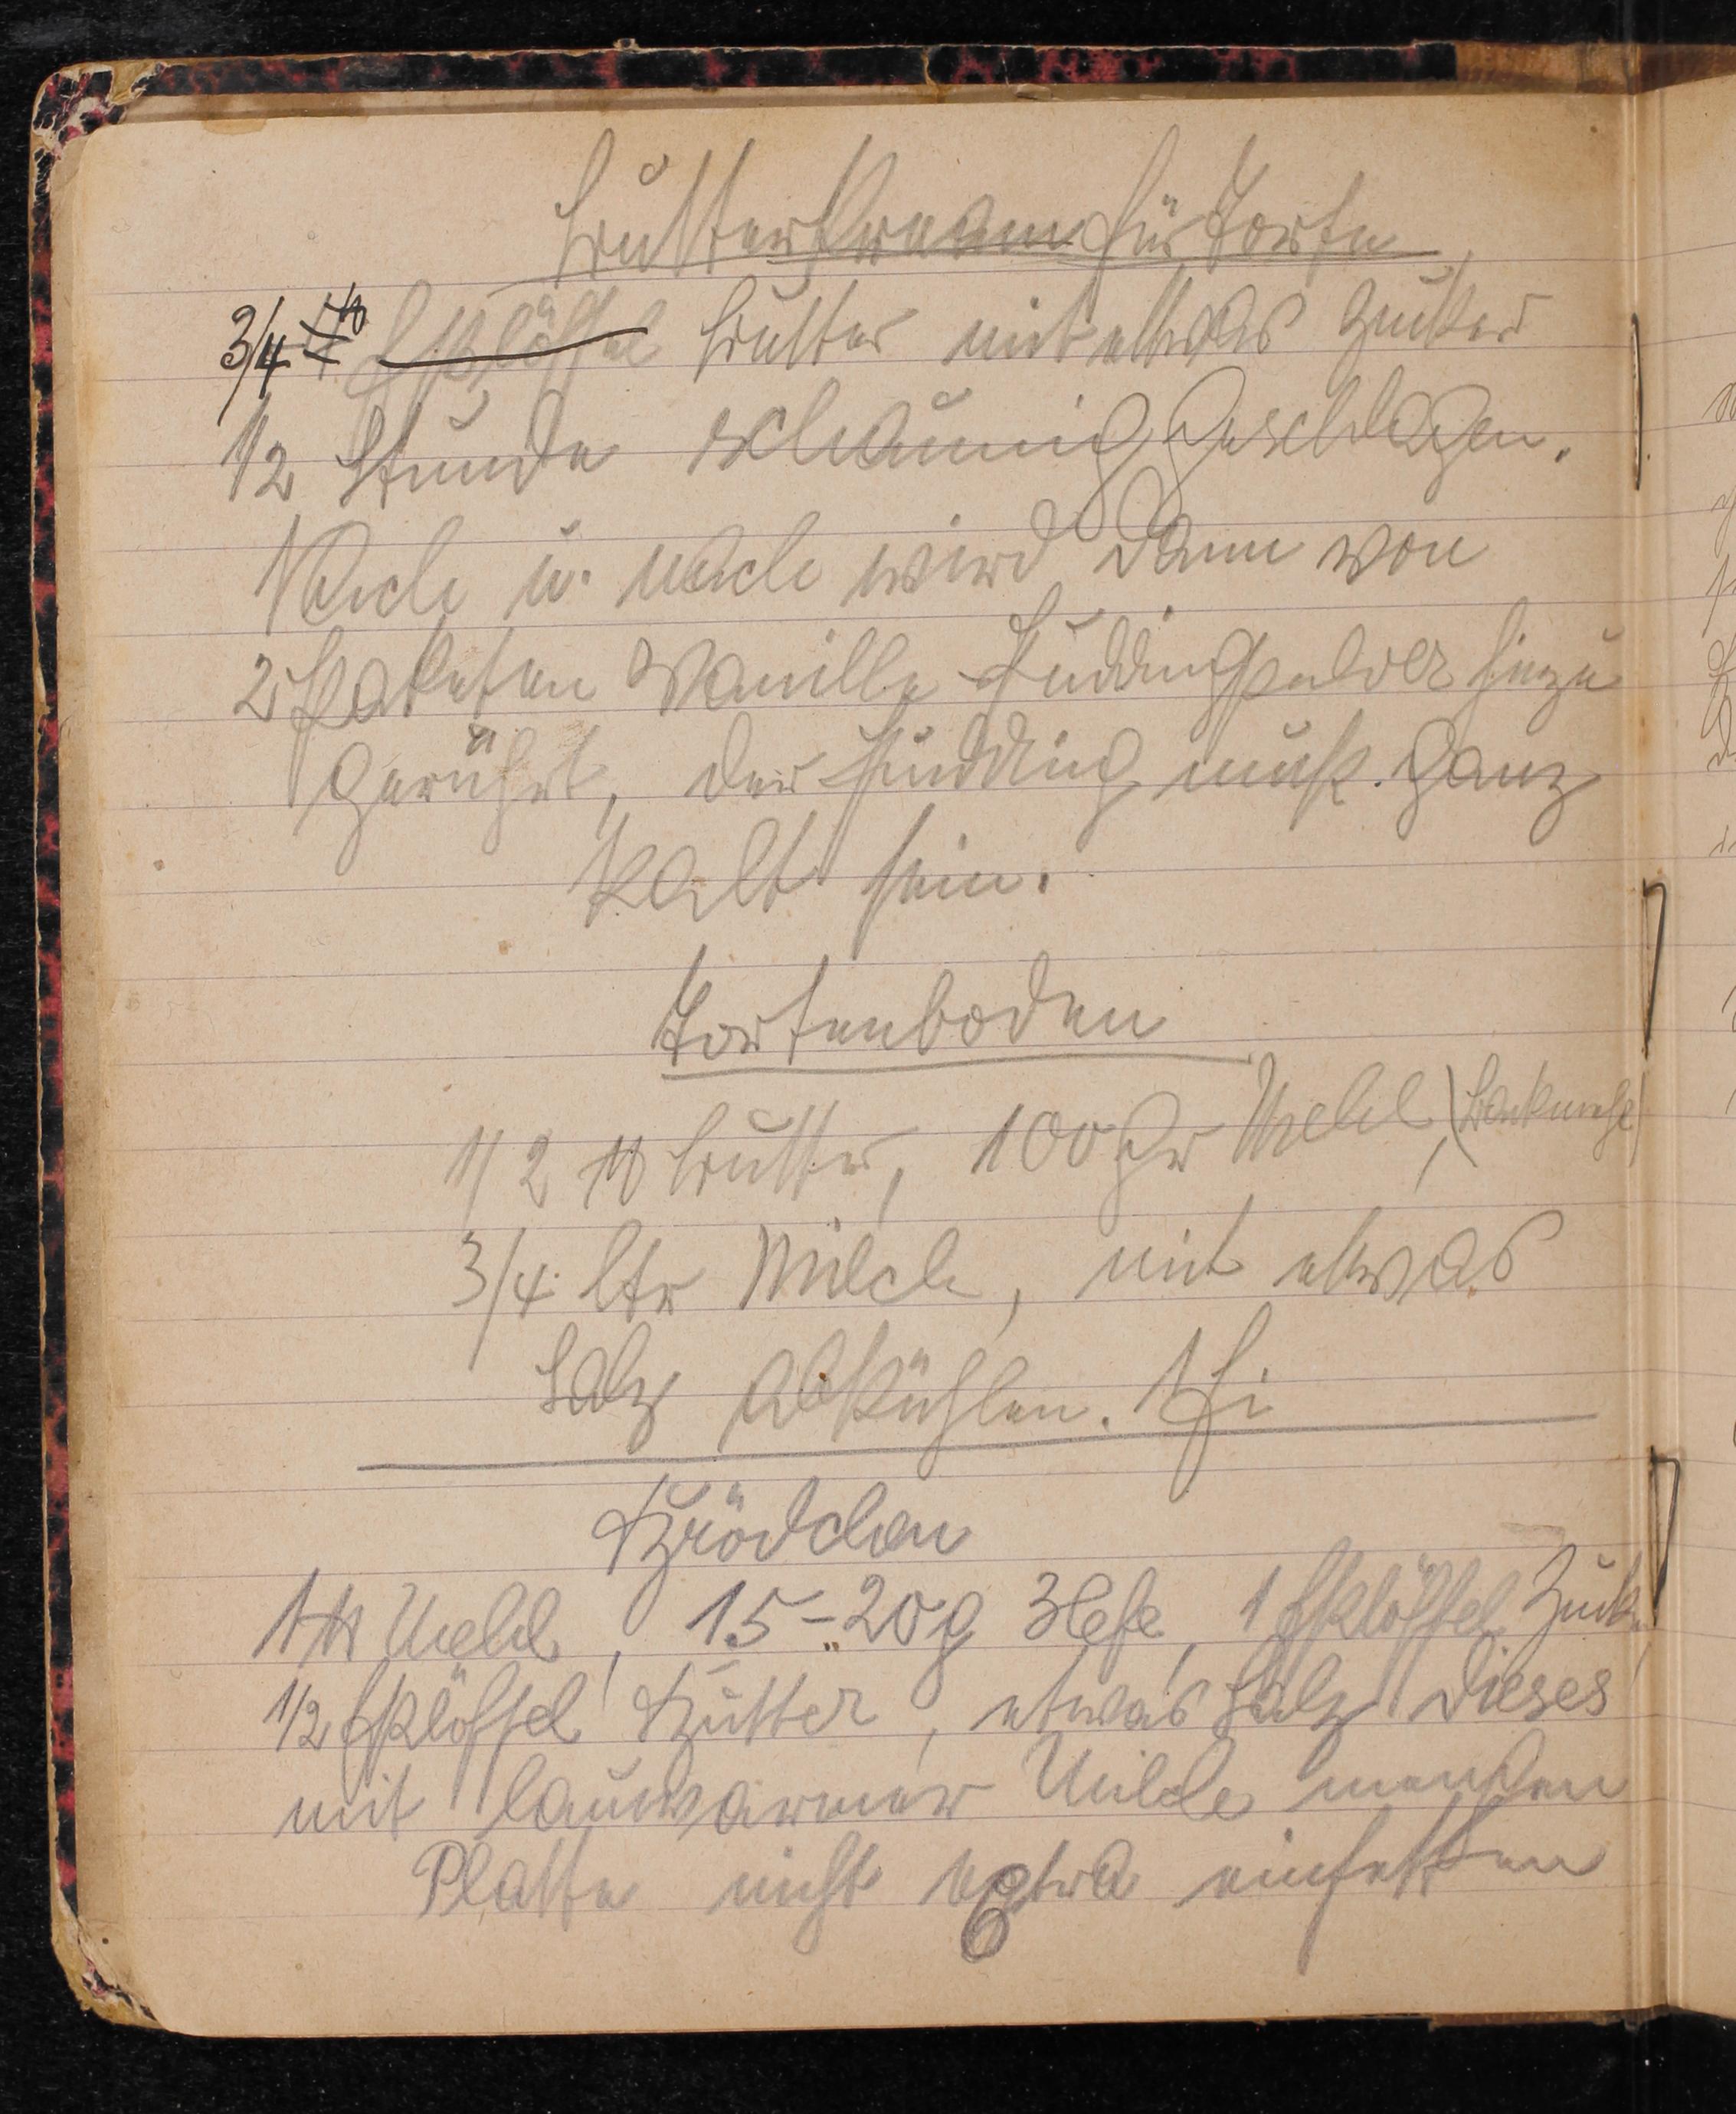 Butterkream für Torte
3/4 ℔ Eßlöffel Butter mit etwas Zucker
1/2 Stunde schaumig geschlagen.
Nach u. nach wird dann von
2 Paketen Vanille Puddingpulver hinzu
gerührt, der Pudding muß ganz
kalt sein.
Tortenboden
1/2 ℔ Butter, 100 gr Mehl, (Backmehl)
3/4 ltr Milch, mit etwas
Salz abkühlen.
Brödchen
1 ℔ Mehl, 15-20 g Hefe, 1 Eßlöffel Zuck.
1/2 Eßlöffel Butter, etwas Salz dieses
mit lauwarmer Milch
Platte nicht extra einfetten
6